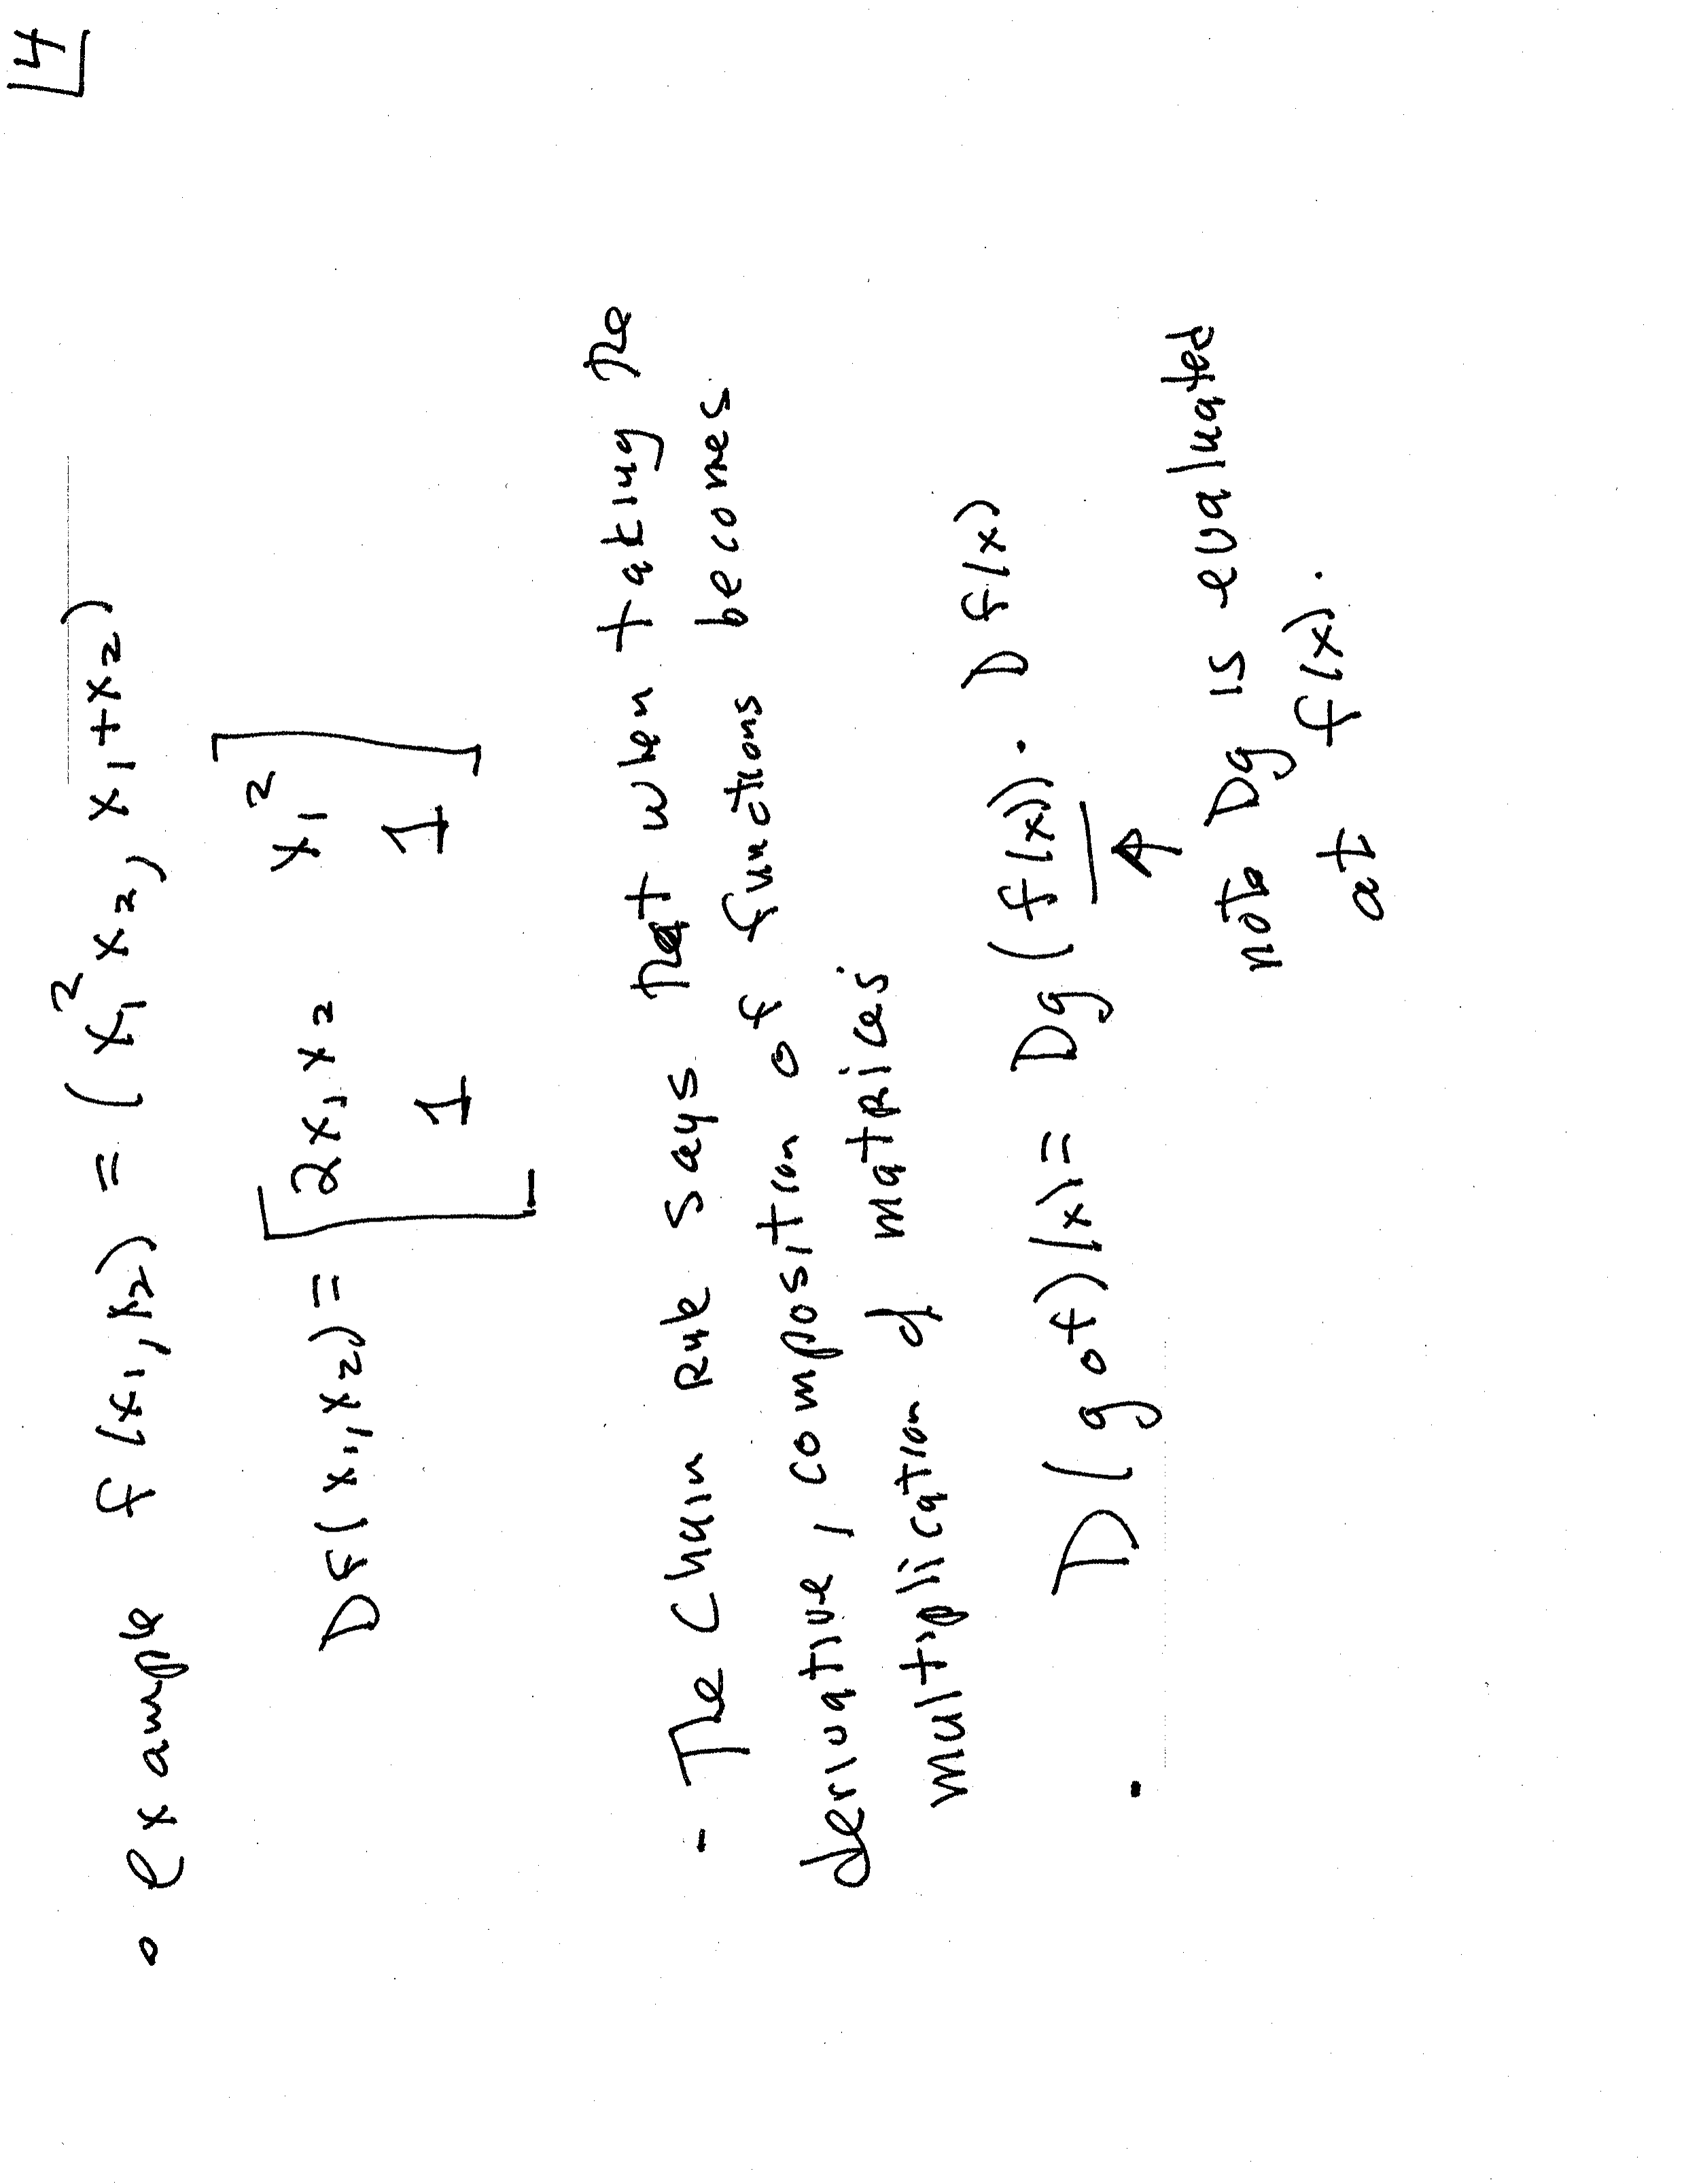 4
• example f(x₁,x₂) = (x₁²x₂, x₁+x₂)
Df(x₁,x₂) = [2x₁x₂ x₁²
1 1]
- The Chain Rule says that when taking the
derivative, composition of functions becomes
multiplication of matrices
• D(g∘f)(x) = Dg(f(x)). Df(x)
↑
note Dg is evaluated
at f(x).